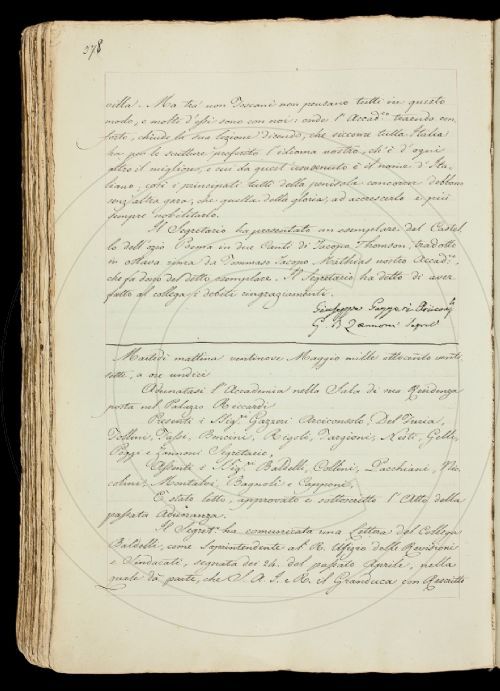 378
villa. Ma tra' non Toscani non pensano tutti in questo
modo, e molti d'essi sono con noi: onde l'Accad.co traendo con-
forto, chiude la sua lezione dicendo, che siccome tutta Italia
ha per le scritture preferito l'idioma nostro, ch'è d'ogni
altro il migliore, e cui da quest' è il nome d'Ita-
liano, così i principati tutti della penisola concorrer debbono
senz'altra gara, che quella della gloria, ad accrescerlo e più
sempre nobilitarlo.
Il Segretario ha presentato un esemplare del Castel-
lo dell'ozio Poema in due Canti di Jacopo Thomson, tradotto
in ottava rima da Tommaso Jacopo Mathias nostro Accad.co,
che fa dono del detto esemplare. Il Segretario ha detto di aver
fatto al collega i debiti ringraziamenti.
Giuseppe Gazzeri Arcicons.o
G. B. Zannoni Segret.
Martedì mattina ventinove Maggio mille ottocento venti-
sette, a ore undici
Adunatasi l'Accademia nella Sala di sua Residenza
posta nel Palazzo Riccardi
Presenti i Sigg.ri Gazzeri Arciconsolo, Del Furia,
Follini, Pucini, Rigoli, Targioni, Nesti, Gelli,
Pozzi e Zannoni Segretario,
Assenti i Sigg.ri Baldelli, Collini, Pacchiani, Nic-
colini, Montalvi, Bagnoli e Capponi,
È stato letto, approvato e sottoscritto l'Atto della
passata Adunanza.
Il Segret.o ha comunicata una Lettera del Collega
Baldelli, come Soprintendente al R. Ufizio delle Revisioni
e Sindacati, segnata dei 24. del passato Aprile, nella
quale dà parte, che S. A. I. e R. il Granduca con Rescritto